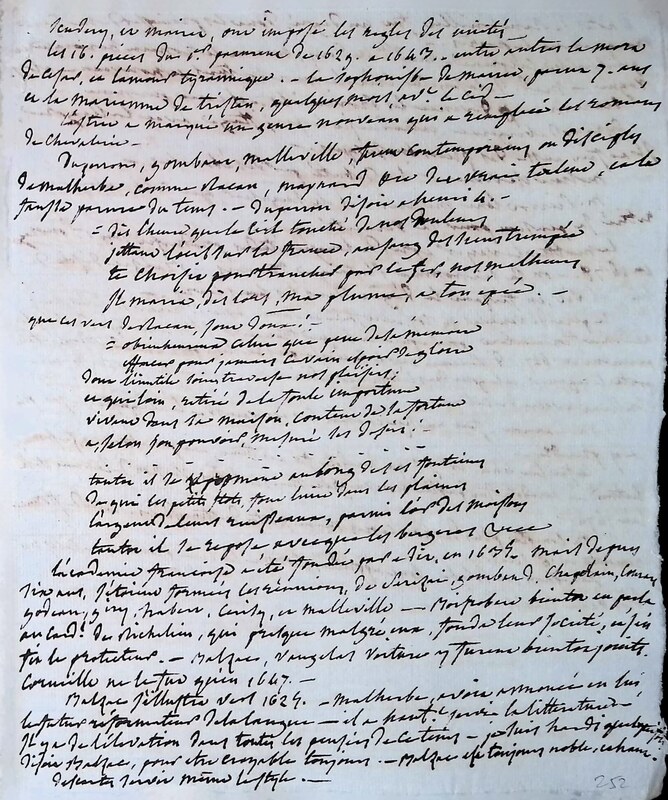 Scudery, et mairet, ont imposé les regles des unités
les 16. pieces du 1er. parurent de 1629. a 1643. - entre autres la mort
de Cesar, et l'amour tyrannique. - la Sophonisbe de mairet, parut 7. ans
et la marianne de tristan, quelques mois av.t le Cid -
l'astrée a marqué un genre nouveau qui a remplacé les romans
de chevalerie -
Duperron, gombaut, malleville, furent contemporains ou disciples
de malherbe, comme racan, maynard &c. des vrais talens, et le
faux parurent du tems. - Duperron disoit a henri 4. -
= dès l'heure que le Ciel touché de nos malheurs
jettant l'oeil sur la france, au sang des siens trempée
te choisit pour trancher par le fer, nos malheurs
Je mariai dès lors, ma plume, a ton epée. -
que ces vers de racan, sont doux! -
= o bienheureux celui qui peut de sa mémoire
effacer pour jamais ce vain espoir de gloire
dont l'inutile soin traverse nos plaisirs;
et qui loin, retiré de la foule importune
vivant dans sa maison, content de sa fortune
a, selon son pouvoir, mesuré ses desirs!
tantot il se promene au long de ses fontaines
de qui les petits flots, font luire dans les plaines
l'argent de leurs ruisseaux, parmi l'or des moissons
tantot il se repose avecque les bergeres &c
L'académie françoise a été fondée en 1635. mais depuis
six ans, s'etoient formées les réunions, de Serizai, gombaud, Chapelain, Conrart
godeau, giry, habert, Cerisy, et malleville - Boisrobert bientot en parla
au Card.l de Richelieu, qui presque malgré eux, fonda leur société, et s'en
fit le protecteur. - Balzac, vaugelas voiture y furent bientot joints.
Corneille ne le fut qu'en 1647. -
Balzac s'illustra vers 1624. - malherbe, avoit annoncé en lui,
le futur réformateur de la langue - il a haut.t servi la littérature -
Il y a de l'élévation dans toutes les pensées de ce tems - je suis hardi quelquefois
disoit Balzac, pour etre croyable toujours - Balzac est toujours noble, et haut.
descartes servit même le style. -
252